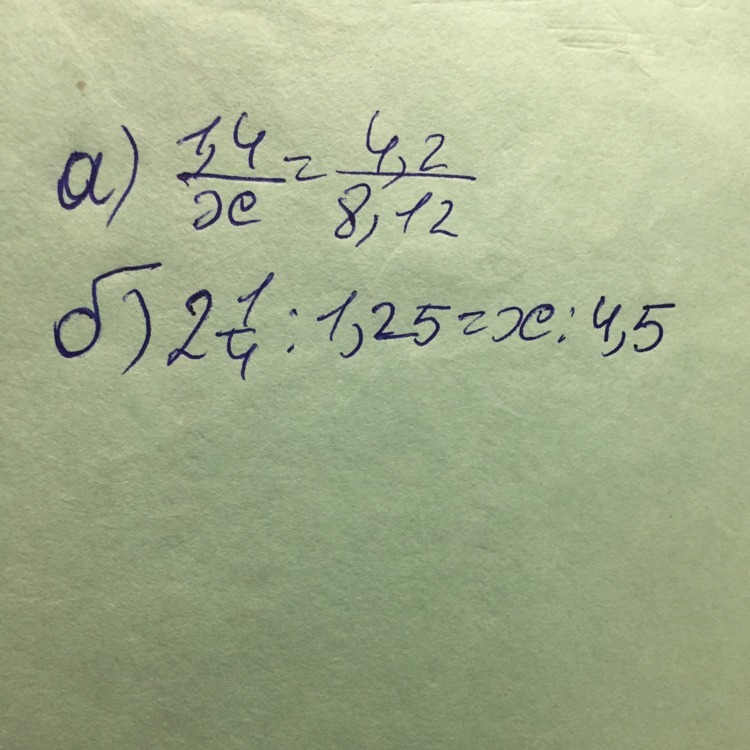 а) 1,4/x = 4,2/8,12
б) 2 1/4 : 1,25 = x : 4,5